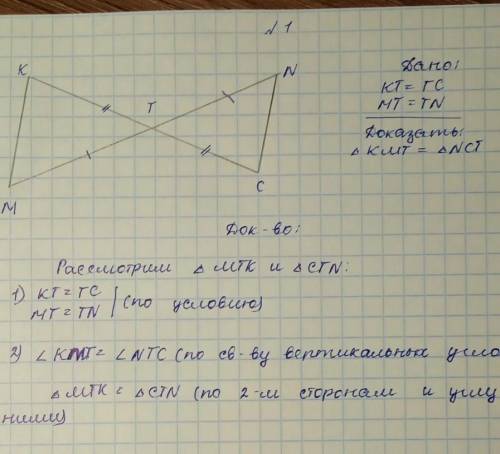 № 1
K
T
N
M
C
Дано:
KT = TC
MT = TN
Доказать:
△ KMT = △ NCT
Док-во:
Рассмотрим △ MTK и △ CTN:
1) KT = TC
MT = TN
(по условию)
2) ∠ KMT = ∠ NTC (по св-ву вертикальных угло
△ MTK = △ CTN (по 2-м сторонам и углу
ними)